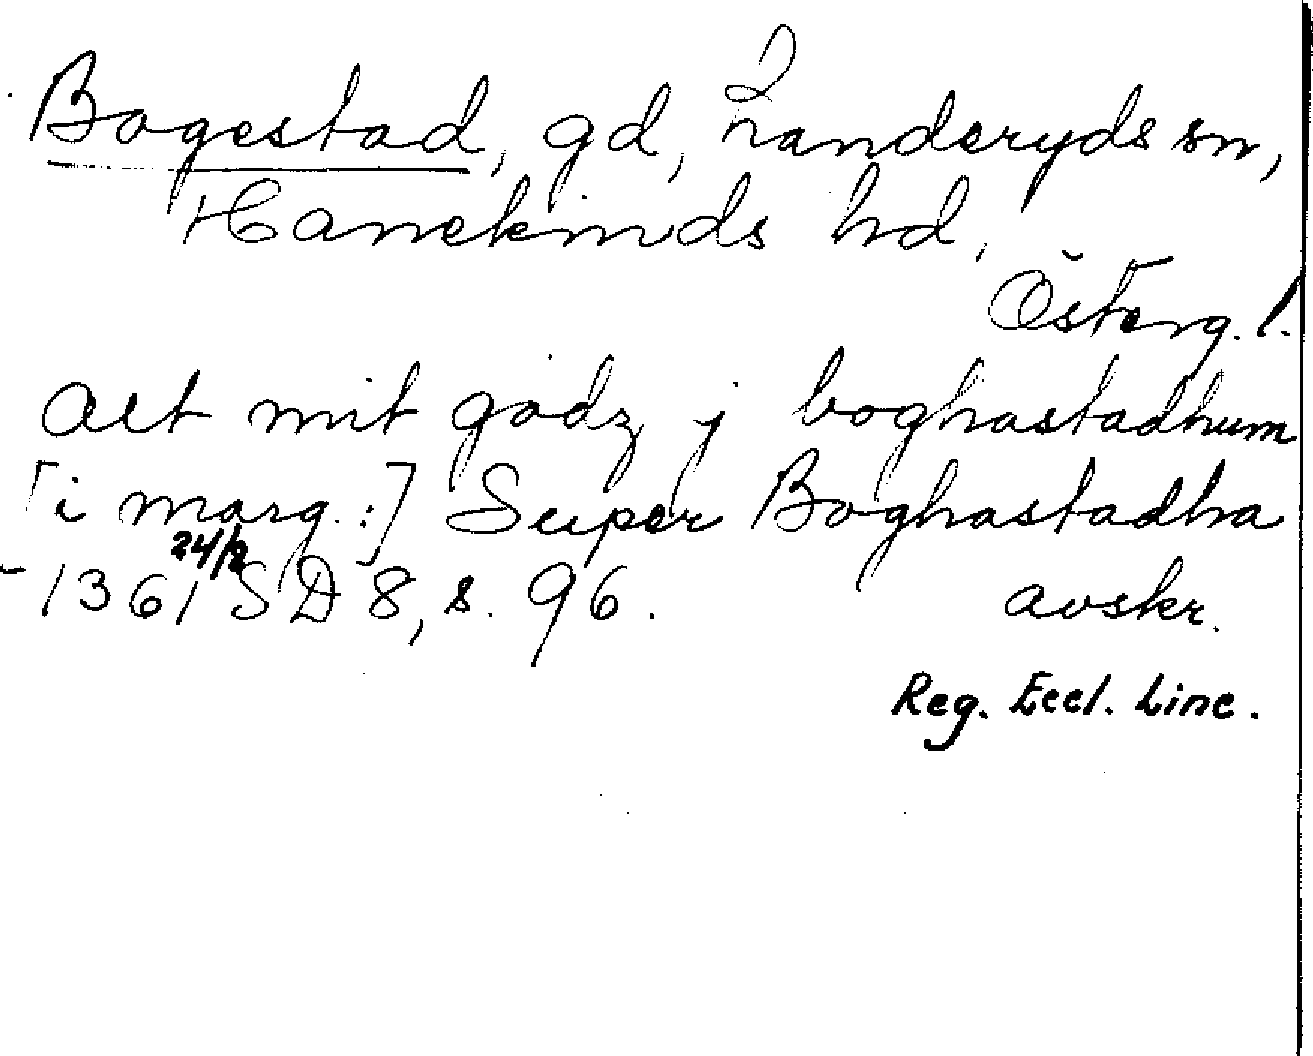 Bogestad, gd, Landeryds sn,
Hanekinds hd,
Österg. l.
alt mit godz j boghastadhum
[i marg.:] Super Boghastadha
1361 24/2 SD 8, s. 96. avskr.
Reg. Eccl. Linc.